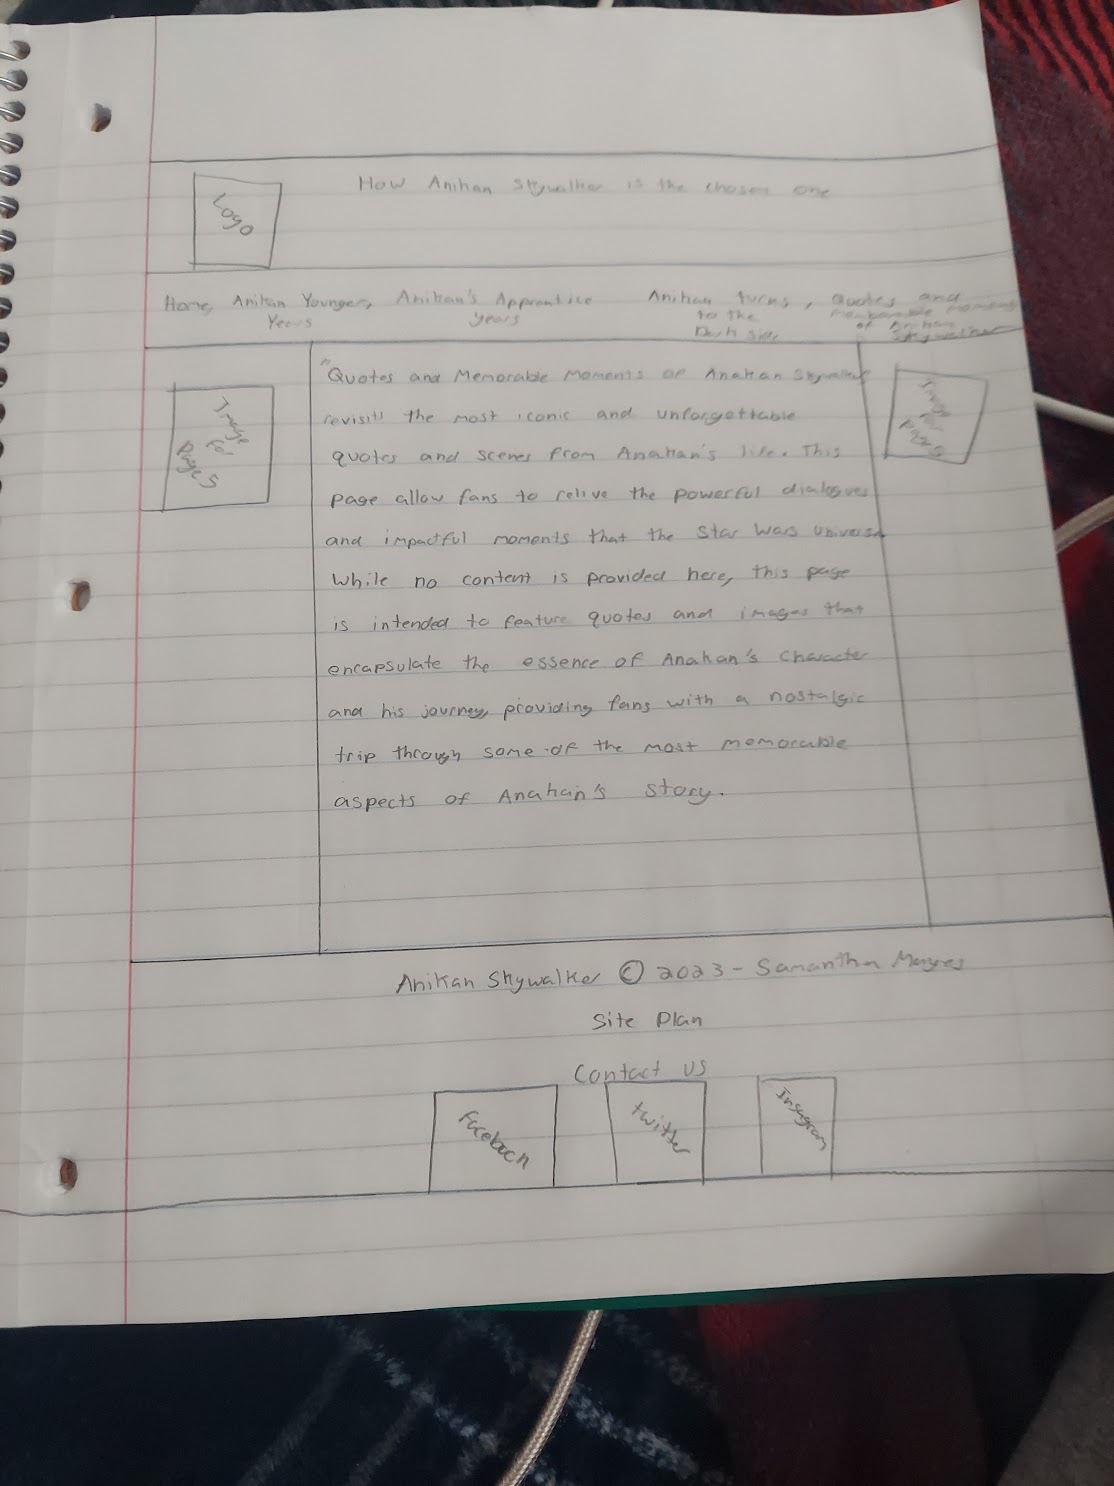 Logo
How Anikan Skywalker is the chosen one
Home, Anikan Younger, Anikan's Apprentice Anikan turns, Quotes and
Years years to the memorable moments
Dark side, of Anikan
Skywalker
"Quotes and Memorable Moments of Anakan Skywalker
revisits the most iconic and unforgettable
quotes and scenes from Anakan's life. This
page allow fans to relive the powerful dialogues
and impactful moments that the Star Wars Universe
While no content is provided here, this page
is intended to feature quotes and images that
encapsulate the essence of Anakan's character
and his journey, providing fans with a nostalgic
trip through some of the most memorable
aspects of Anakan's story.
Image
for
page 5
Image
for
page 5
Anikan Skywalker © 2023 - Samantha
Site Plan
Contact US
Facebook
twitter
Instagram